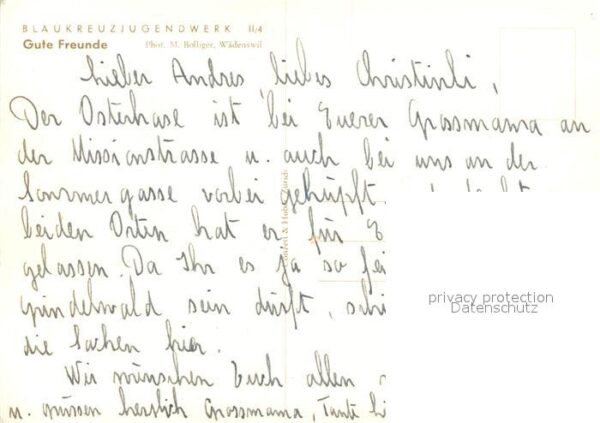 BLAUKREUZJUGENDWERK II/4
Gute Freunde Phot. M. Bolliger, Wädenswil
Lieber Andres, liebes Christinli,
Der Osterhase ist bei Euerer Grossmama an
der Missionstrasse u. auch bei uns an der
Sommergasse vorbei gehüpft
beiden Orten hat er für
gelassen. Da Ihr es ja so
Grindelwald sein dürft,
die Sachen hier.
Wir wünschen Euch allen
u. grüssen herzlich Grossmama, Tante
privacy protection
Datenschutz